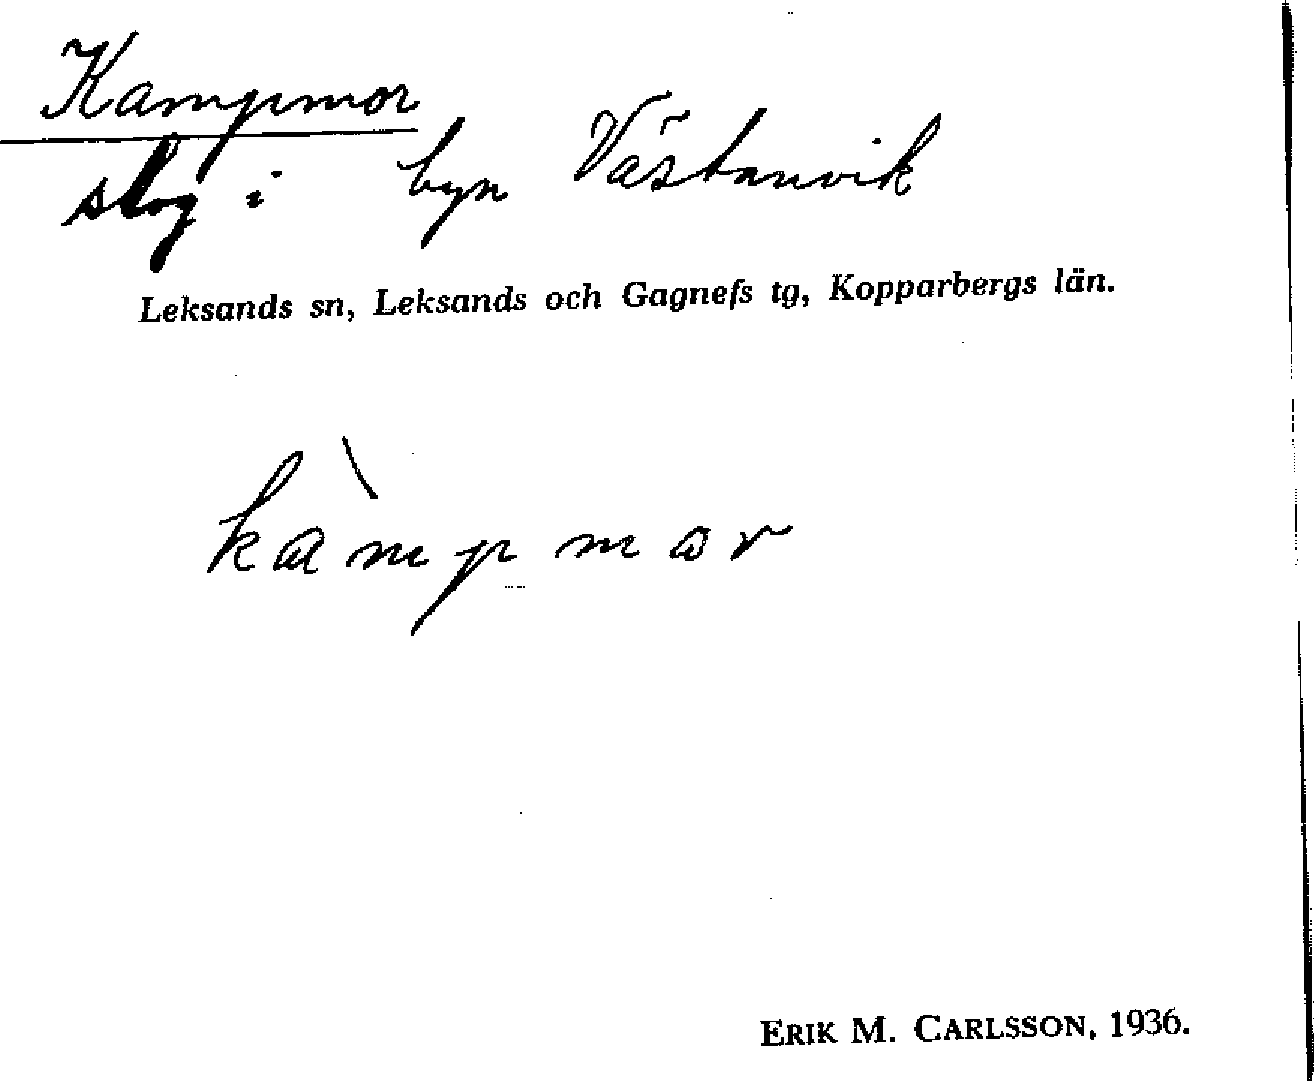 Kampmor
skog i byn Västanvik
Leksands sn, Leksands och Gagnefs tg, Kopparbergs län.
kàmpmor
ERIK M. CARLSSON, 1936.